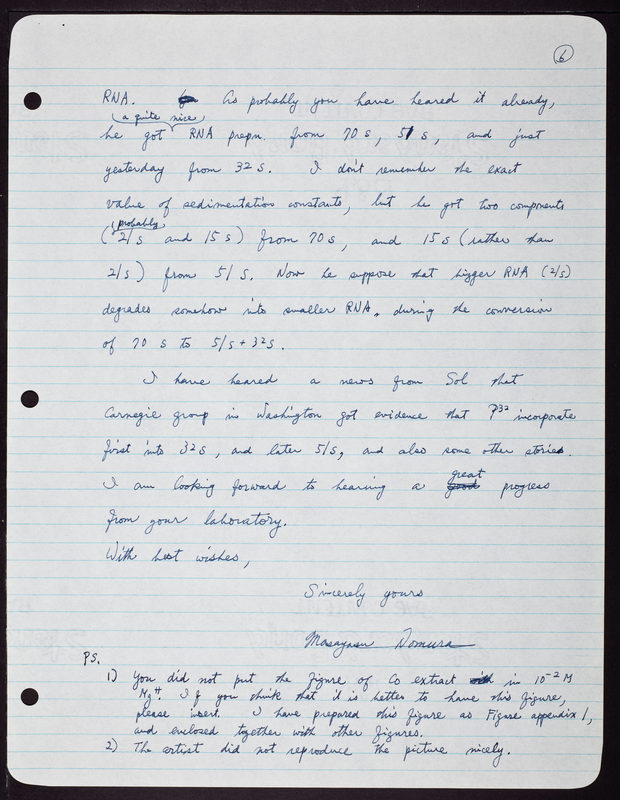 6
RNA. As probably you have heared it already,
he got a quite nice RNA prepn. from 70 s, 51 s, and just
yesterday from 32 s. I don't remember the exact
value of sedimentation constants, but he got two components
(probably 21 s and 15 s) from 70 s, and 15 s (rather than
21 s) from 51 s. Now he suppose that bigger RNA (21 s)
degrades somehow into smaller RNA, during the conversion
of 70 s to 51 s + 32 s.
I have heared a news from Sol that
Carnegie group in Washington got evidence that P32 incorporate
first into 32 s, and later 51 s, and also some other stories.
I am looking forward to hearing a great progress
from your laboratory.
With best wishes,
Sincerely yours
Masayasu Nomura
PS.
1) You did not put the figure of Co extract in 10-2 M
Mg++. If you think that it is better to have this figure,
please insert. I have prepared this figure as Figure appendix 1,
and enclosed together with other figures.
2) The artist did not reproduce the picture nicely.